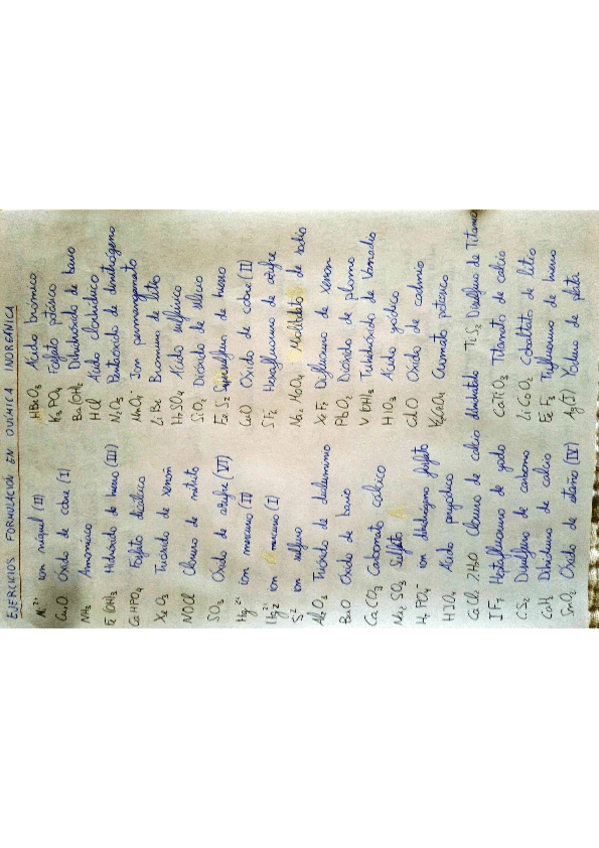 EJERCICIOS FORMULACIÓN EN QUÍMICA INORGÁNICA
Ni²⁺ ion níquel (II)
CuO Oxido de cobre (I)
NH₃ Amoniaco
Fe(OH)₃ Hidróxido de hierro (III)
CaHPO₄ Fosfato
XeO₃ Trióxido de xenón
NOCl Cloruro de nitrilo
SO₃ Oxido de azufre (VI)
Hg²⁺ ion mercurio (II)
Hg₂²⁺ ion mercurio (I)
S²⁻ ion sulfuro
Al₂O₃ Trióxido de dialuminio
BaO Oxido de bario
CaCO₃ Carbonato cálcico
Na₂SO₃ Sulfato
H₂PO₄⁻ ion dihidrogeno fosfato
HIO₄ Acido peryodico
CaCl₂ 2H₂O Cloruro de calcio dihidratado
IF₇ Heptafluoruro de yodo
CS₂ Disulfuro de carbono
CaH₂ Dihidruro de calcio
SnO₂ Oxido de estaño (IV)
HBrO₃ Acido brómico
K₃PO₄ Fosfato potásico
Ba(OH)₂ Dihidróxido de bario
HCl Acido clorhídrico
N₂O₅ Pentaóxido de dinitrógeno
MnO₄⁻ Ion permanganato
LiBr Bromuro de litio
H₂SO₄ Acido sulfúrico
SiO₂ Dióxido de silicio
FeS₂ de hierro
CuO Oxido de cobre (II)
SF₆ Hexafluoruro de azufre
Na₂MoO₄ Molibdato de sodio
XeF₂ Difluoruro de xenón
PbO₂ Dióxido de plomo
V(OH)₃ Trihidróxido de Vanadio
HIO₃ Acido yodico
CdO Oxido de cadmio
K₂CrO₄ Cromato potásico
TiS₂ Disulfuro de Titanio
CaTiO₃ Titanato de calcio
LiCoO₂ Cobaltato de litio
FeF₃ Trifluoruro de hierro
Ag(I) Yoduro de plata